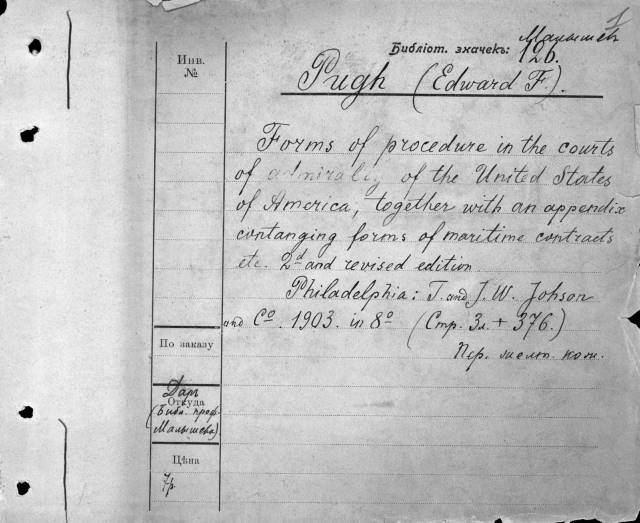 1
Малышев
Библіот. значекъ: 126.
Инв.
№
Pugh (Edward F.).
Forms of procedure in the courts
of admiralty of the United States
of America, together with an appendix
contanging forms of maritime contracts
etc. 2d and revised edition
Philadelphia: T. and J. W. Johson
and Co. 1903. in 8o (Стр. 3л. + 376.)
По заказу
Даръ
Откуда
(Библ. проф.
Малышева)
Цѣна
7р.